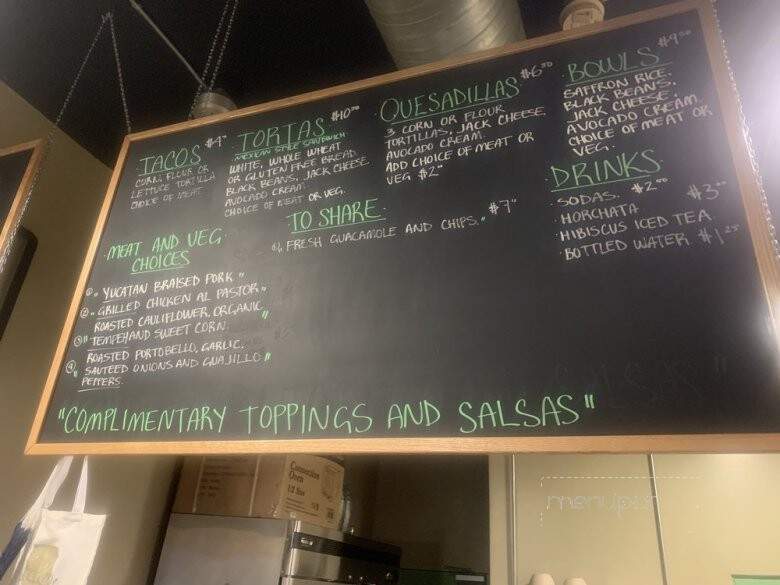 TACOS
CORN, FLOUR OR
LETTUCE TORTILLA
CHOICE OF MEAT
TORTAS $10.00
MEXICAN STYLE SANDWICH
WHITE, WHOLE WHEAT
OR GLUTEN FREE BREAD
BLACK BEANS, JACK CHEESE,
AVOCADO CREAM
CHOICE OF MEAT OR VEG.
QUESADILLAS $6.00
3 CORN OR FLOUR
TORTILLAS, JACK CHEESE,
AVOCADO CREAM
ADD CHOICE OF MEAT OR
VEG $2
BOWLS $9.00
SAFFRON RICE.
BLACK BEANS,
JACK CHEESE,
AVOCADO CREAM
CHOICE OF MEAT OR
VEG.
DRINKS
SODAS. $2.00
HORCHATA $3.00
HIBISCUS ICED TEA
BOTTLED WATER $1.25
TO SHARE
FRESH GUACAMOLE AND CHIPS." $7
MEAT AND VEG
CHOICES
① " YUCATAN BRAISED PORK "
② " GRILLED CHICKEN AL PASTOR "
ROASTED CAULIFLOWER, ORGANIC
③ " TEMPEH AND SWEET CORN. "
ROASTED PORTOBELLO, GARLIC,
④ " SAUTEED ONIONS AND GUAJILLO "
PEPPERS.
"COMPLIMENTARY TOPPINGS AND SALSAS"
Convection
Oven
1/2 Size
menupix